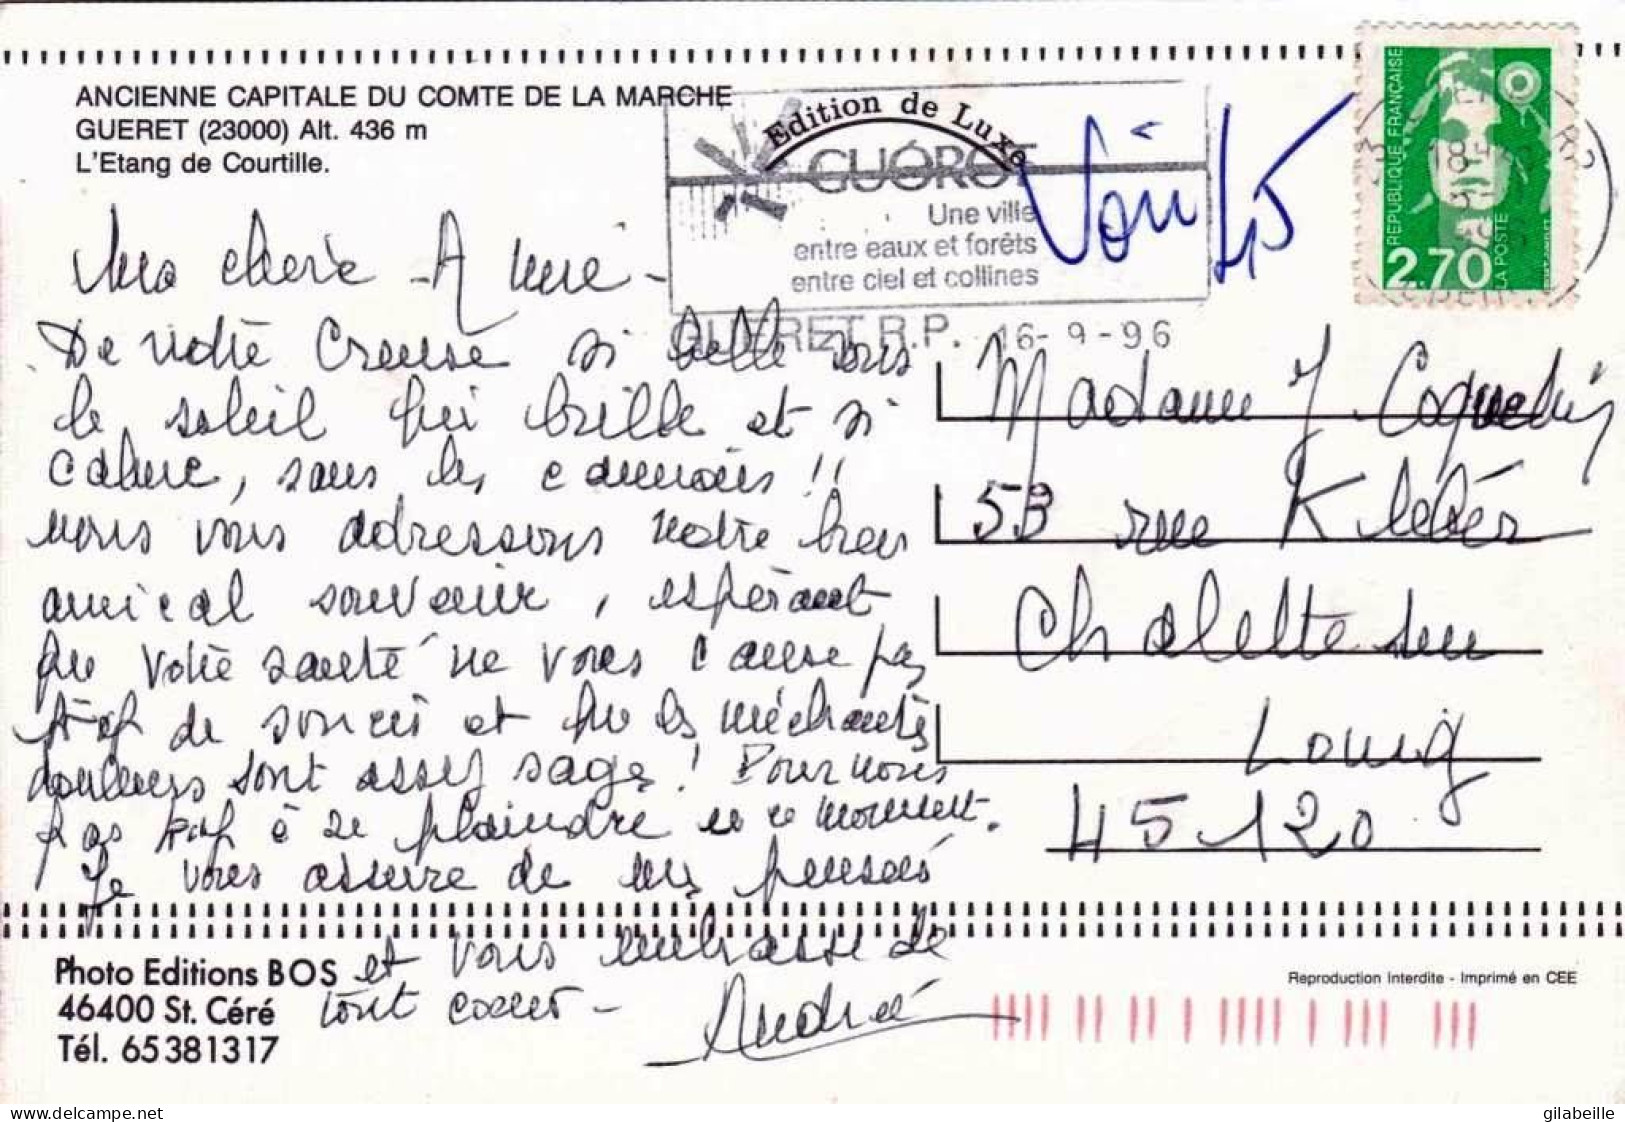 ANCIENNE CAPITALE DU COMTE DE LA MARCHE
GUERET (23000) Alt. 436 m
L'Etang de Courtille.
Edition de Luxe
GUÉRET
Une ville
entre eaux et forêts
entre ciel et collines
GUERET R.P. 16-9-96
Voir 45
REPUBLIQUE FRANÇAISE
2,70
LA POSTE
Ma chère Amie -
De notre Creuse si belle sous
le soleil qui brille et si
calme, sans les !!
nous vous adressons notre bien
amical souvenir, espérant
que votre santé ne vous cause pas
trop de soucis et que les méchantes
douleurs sont assez sages! Pour nous
pas trop à se plaindre en ce moment.
Je vous assure de mes pensées
et vous embrasse de
tout coeur -
Andrée
Madame J
53 rue Kléber
Chalette sur
Loing
45120
Photo Editions BOS
46400 St. Céré
Tél. 65381317
Reproduction Interdite - Imprimé en CEE
www.delcampe.net
gilabeille